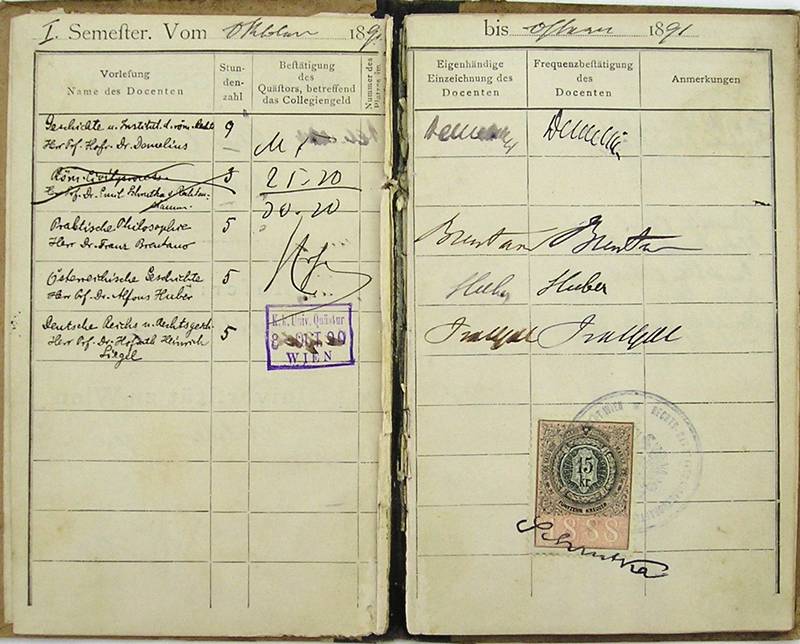 I. Semester. Vom Oktober 189
Vorlesung
Name des Docenten
Stun-
den-
zahl
Bestätigung
des
Quästors, betreffend
das Collegiengeld
Nummer des
Platzes im
Geschichte u. Institut. d. röm. Rechts
Herr Prof. Hofr. Dr. Demelius
9
Röm. Civilprocess
Herr Prof. Dr. Emil Schrutka v. Rechten-
stamm
3
25.20
30.20
Praktische Philosophie
Herr Dr. Franz Brentano
5
Österreichische Geschichte
Herr Prof. Dr. Alfons Huber
5
Deutsche Reichs u. Rechtsgesch.
Herr Prof. Dr. Hofrath Heinrich
Siegel
5
K. k. Univ. Quästur
3 OCT 90
WIEN
bis Ostern 1891
Eigenhändige
Einzeichnung des
Docenten
Frequenzbestätigung
des
Docenten
Anmerkungen
Demelius Demelius
Brentano Brentano
Huber Huber
15
kr.
FÜNFZEHN KREUZER
888
Schrutka